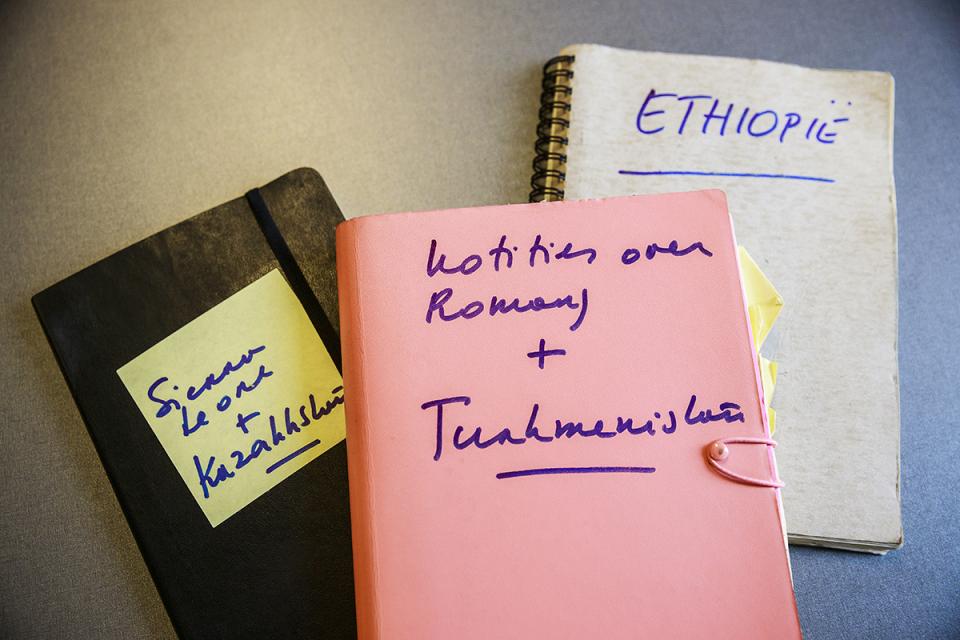 ETHIOPIË
Notities over
Romans
+
Turkmenistan
Sierra
Leone
+
Kazakhstan